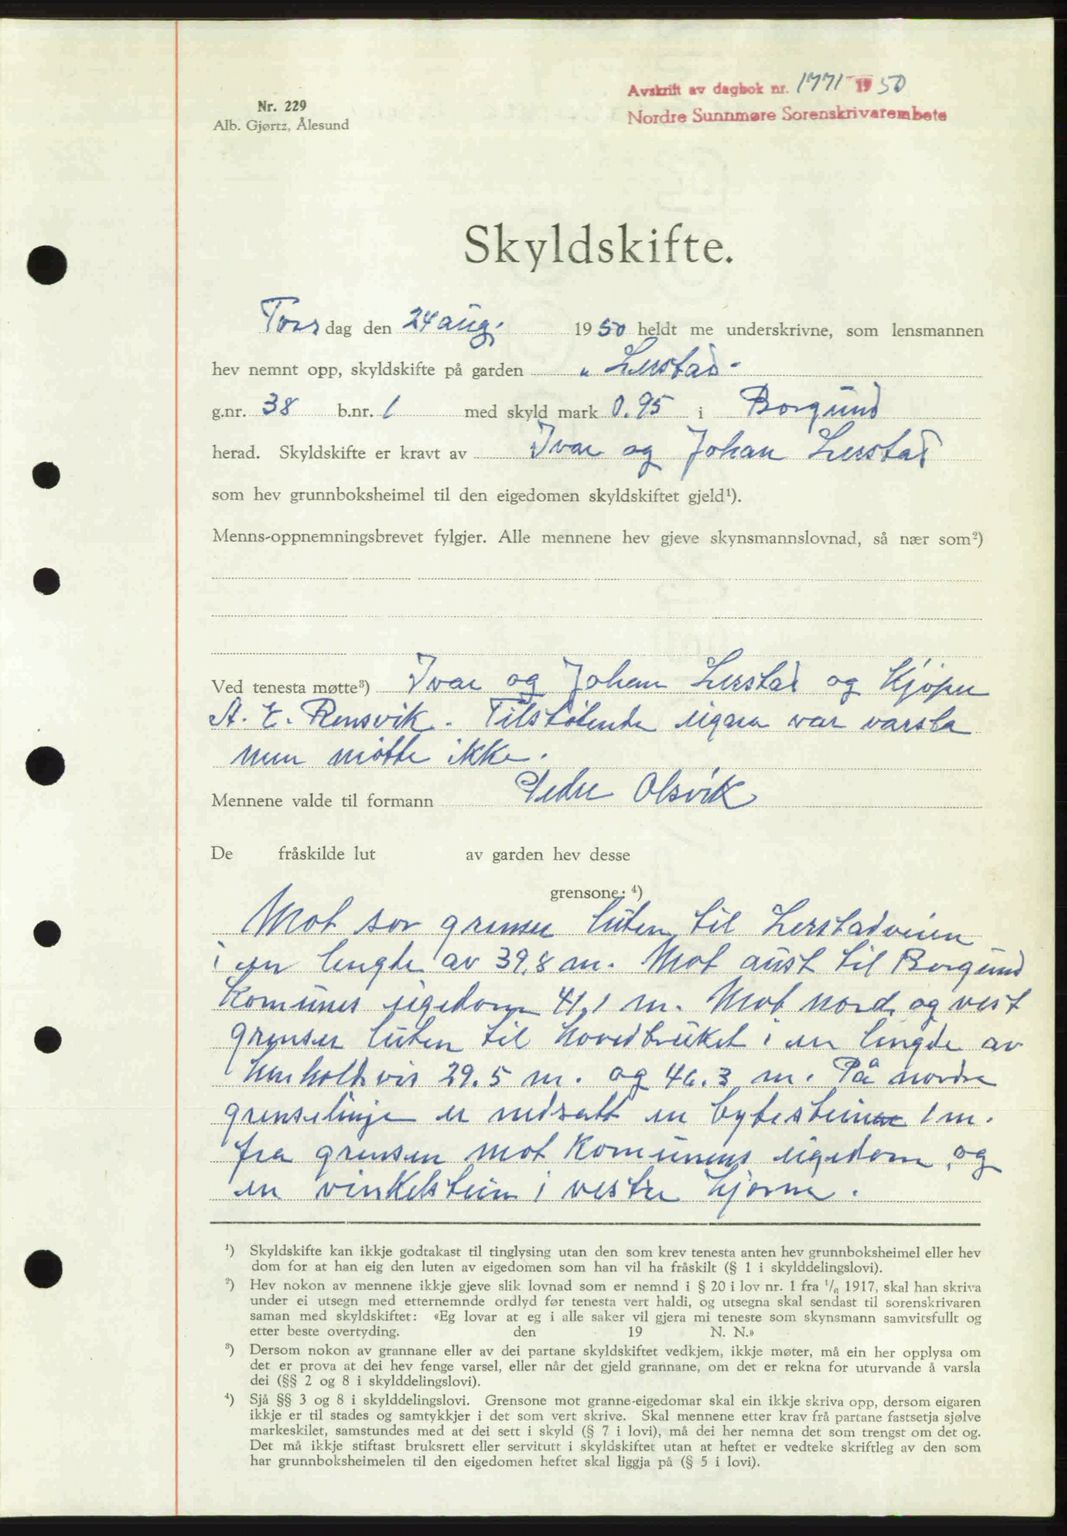 Nr. 229
Alb. Gjørtz, Ålesund
Avskrift av dagbok nr. 1771 - 1950
Nordre Sunnmøre Sorenskrivarembete
Skyldskifte.
Torsdag den 24 aug. 1950 heldt me underskrivne, som lensmannen
hev nemnt opp, skyldskifte på garden „Lerstad"
g.nr. 38 b.nr. 1 med skyld mark 0.95 i Borgund
herad. Skyldskifte er kravt av Ivar og Johan Lerstad
som hev grunnboksheimel til den eigedomen skyldskiftet gjeld¹).
Menns-oppnemningsbrevet fylgjer. Alle mennene hev gjeve skynsmannslovnad, så nær som²)
Ved tenesta møtte³) Ivar og Johan Lerstad og Kjøper
A. E. Rensvik. Tilstøtende eigara var varsla
men møtte ikke.
Mennene valde til formann Peder Olsvik
De fråskilde lut av garden hev desse
grensone: ⁴)
Mot sør grenser luten til Lerstadveien
i en lengde av 39,8 m. Mot aust til Borgund
Komunes eigedom 41,1 m. Mot nord og vest
grenser luten til hovedbruket i en lengde av
henholdsvis 29.5 m. og 46.3 m. På nordre
grenselinje er nedsatt en bytestein 1 m.
fra grensen mot Komunens eigedom, og
en vinkelstein i vestre hjørne.
¹) Skyldskifte kan ikkje godtakast til tinglysing utan den som krev tenesta anten hev grunnboksheimel eller hev
dom for at han eig den luten av eigedomen som han vil ha fråskilt (§ 1 i skylddelingslovi).
²) Hev nokon av mennene ikkje gjeve slik lovnad som er nemnd i § 20 i lov nr. 1 fra ¹/₆ 1917, skal han skriva
under ei utsegn med etternemnde ordlyd før tenesta vert haldi, og utsegna skal sendast til sorenskrivaren
saman med skyldskiftet: «Eg lovar at eg i alle saker vil gjera mi teneste som skynsmann samvitsfullt og
etter beste overtyding. den 19 N. N.»
³) Dersom nokon av grannane eller av dei partane skyldskiftet vedkjem, ikkje møter, må ein her opplysa om
det er prova at dei hev fenge varsel, eller når det gjeld grannane, om det er rekna for uturvande å varsla
dei (§§ 2 og 8 i skylddelingslovi).
⁴) Sjå §§ 3 og 8 i skylddelingslovi. Grensone mot granne-eigedomar skal ein ikkje skriva opp, dersom eigaren
ikkje er til stades og samtykkjer i det som vert skrive. Skal mennene etter krav frå partane fastsetja sjølve
markeskilet, samstundes med at dei sett i skyld (§ 7 i lovi), må dei her nemna det som trengst om det og.
Det må ikkje stiftast bruksrett eller servitutt i skyldskiftet utan at heftet er vedteke skriftleg av den som
har grunnboksheimelen til den eigedomen heftet skal liggja på (§ 5 i lovi).